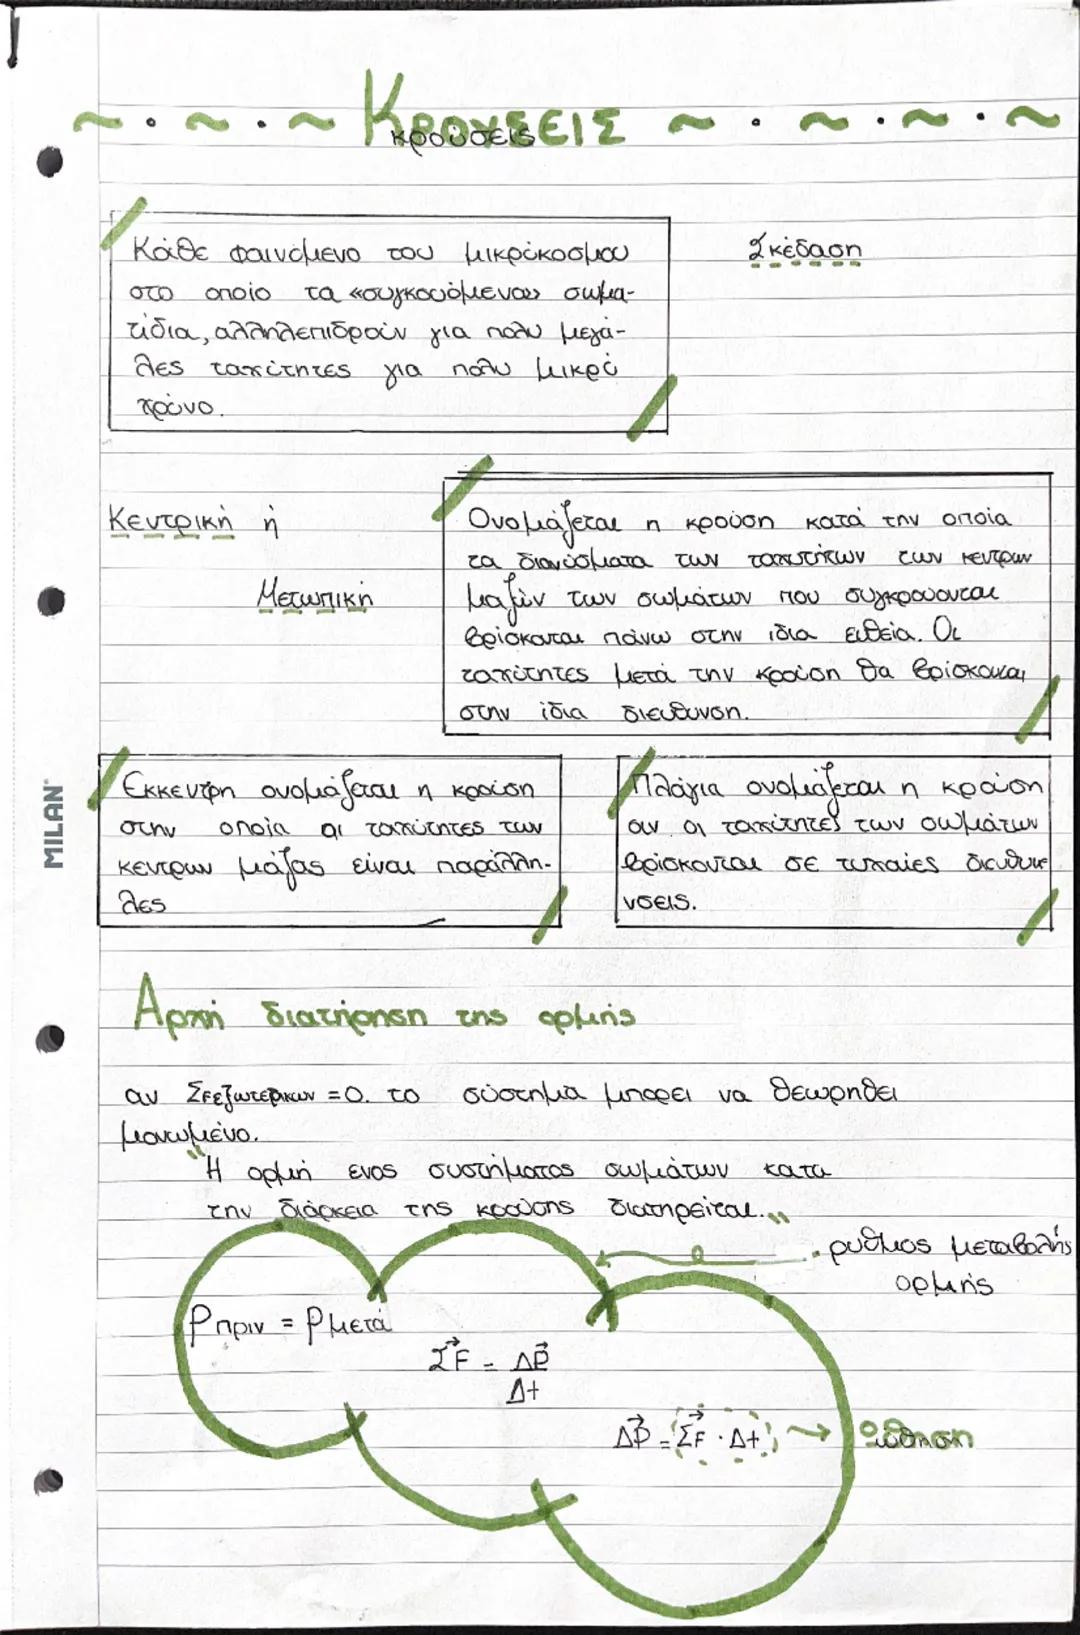 ~ . ~ . ~ ΚΡΟΥΣΕΙΣ ~ . ~ . ~ . ~
κρούσεις
Κάθε φαινόμενο του μικρόκοσμου
στο οποίο τα «συγκουόμενα» σωμα-
τίδια, αλληλεπιδρούν για πολυ μεγά-
λες ταχύτητες για πολυ μικρό
χρόνο.
Σκέδαση
Κεντρική ή
Μετωπική
Ονομάζεται η κρούση κατά την οποία
τα διανύσματα των ταχυτήτων των κεντρων
μαζών των σωμάτων που συγκρούονται
βρίσκονται πάνω στην ίδια ευθεία. Οι
ταχύτητες μετά την κρούση θα βρίσκονται
στην ίδια διευθυνση.
Εκκεντρη ονομάζεται η κρούση
στην οποία οι ταχύτητες των
κεντρων μάζας είναι παράλλη-
λες
Πλάγια ονομάζεται η κρούση
αν οι ταχύτητες των σωμάτων
βρίσκονται σε τυχαίες
νσεις.
Αρχή διατήρηση της ορμής
αν ΣFεξωτερικων = 0. το σύστημα μπορει να θεωρηθει
μονωμένο.
"Η ορμή ενος συστήματος σωμάτων κατα
την διάρκεια της κρούσης διατηρείται."
ρυθμος μεταβολής
ορμής
Pπριν = Pμετά
ΣF⃗ = ΔP⃗
Δt
ΔP⃗ = ΣF⃗ · Δt → ώθηση
ώθηση
MILAN